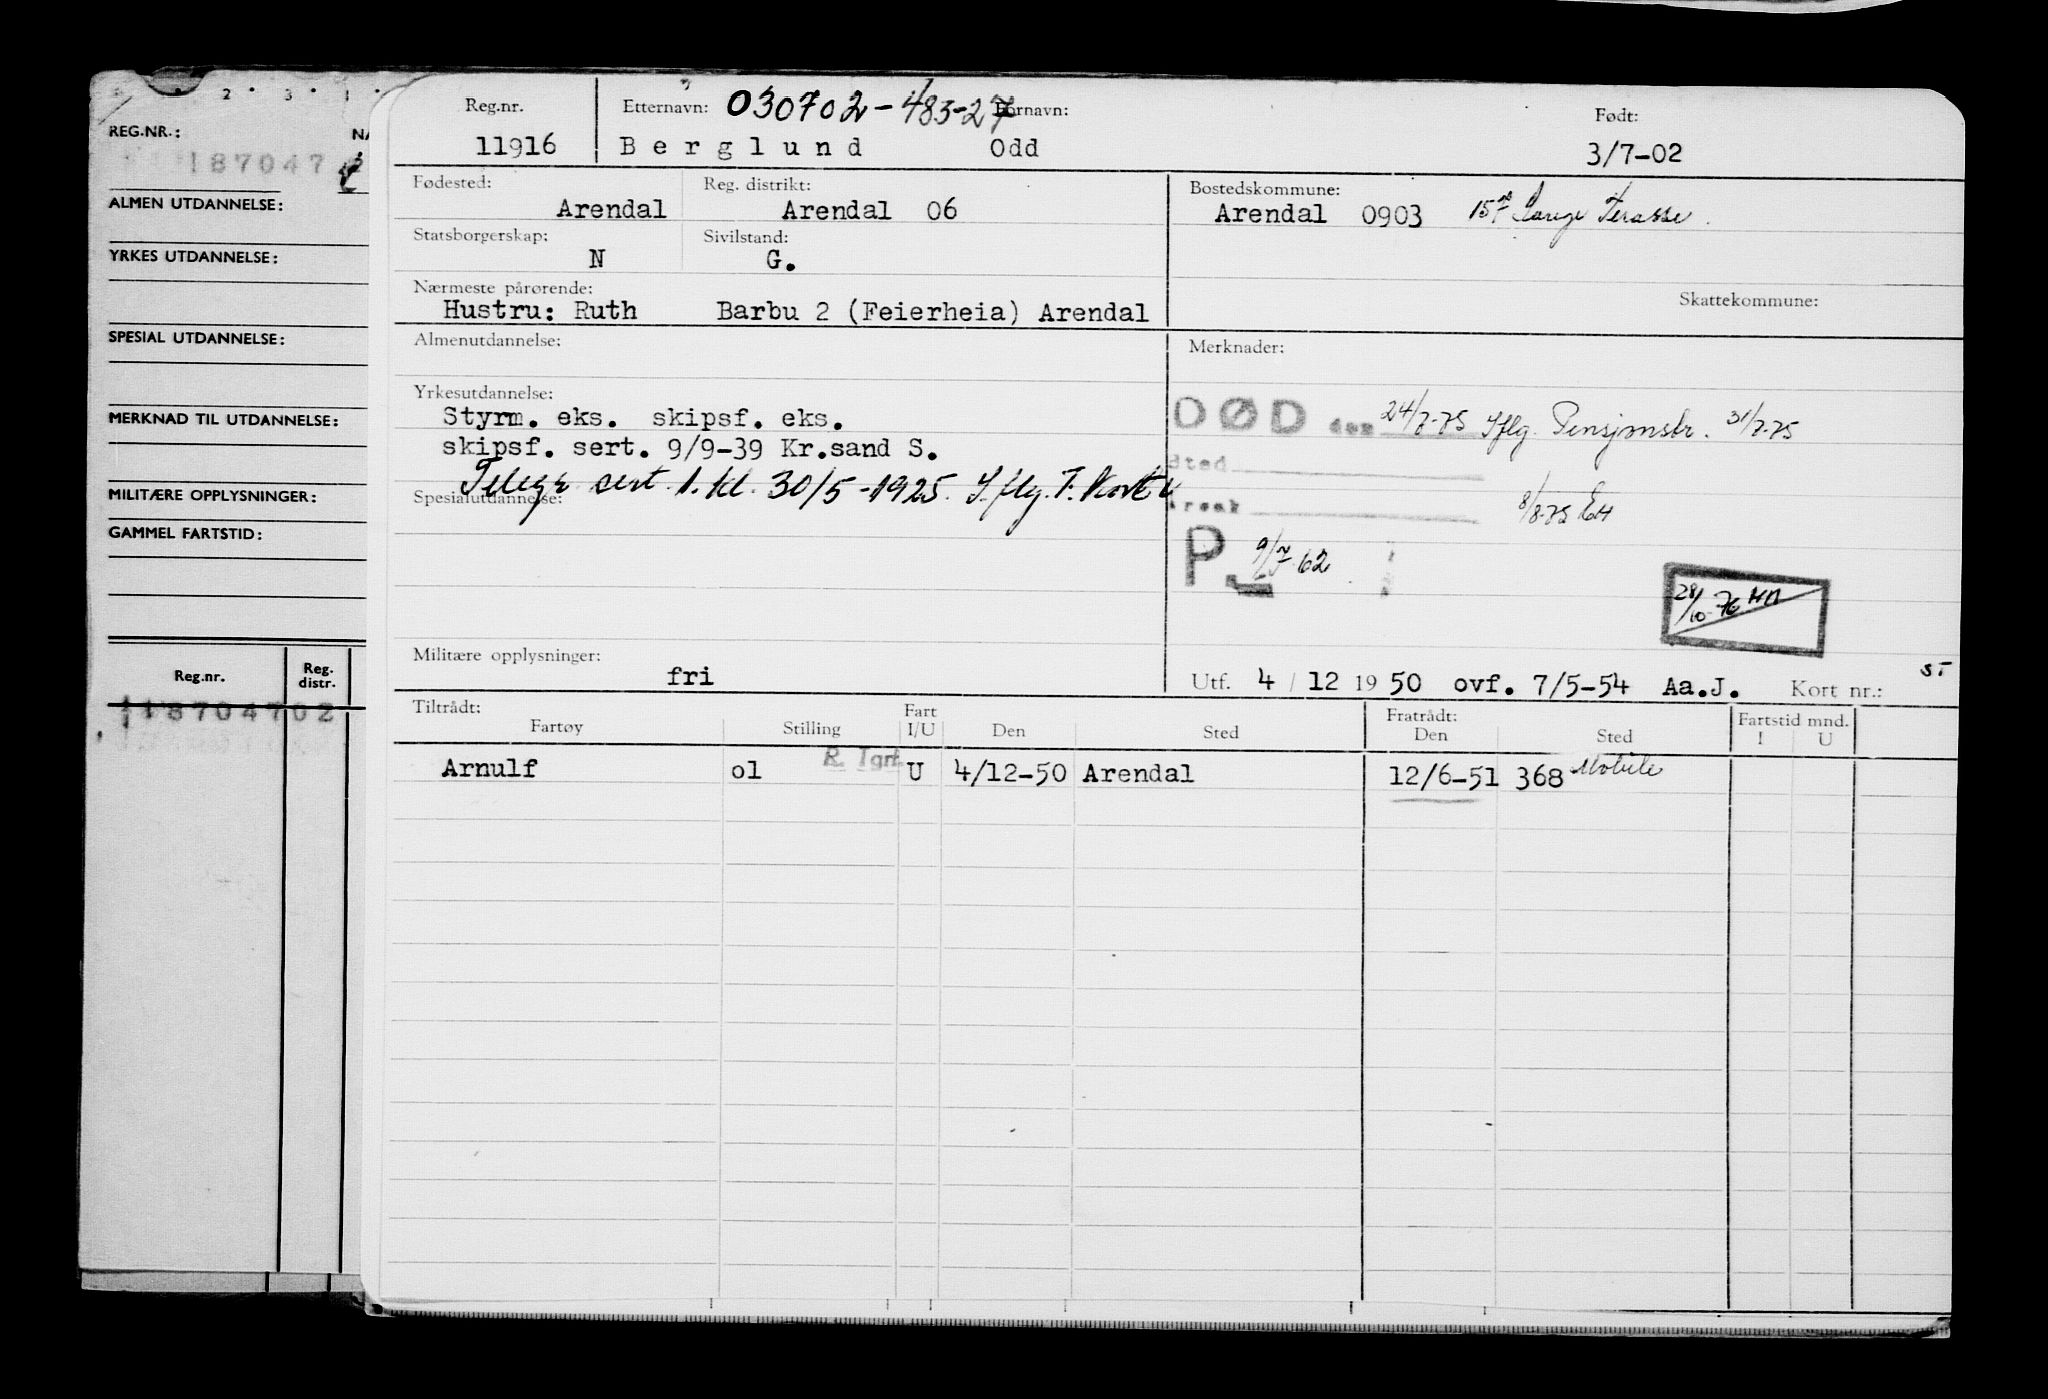 2 · 3 · 1 ·
REG.NR.:
187047
ALMEN UTDANNELSE:
YRKES UTDANNELSE:
SPESIAL UTDANNELSE:
MERKNAD TIL UTDANNELSE:
MILITÆRE OPPLYSNINGER:
GAMMEL FARTSTID:
Reg.nr. Reg. distr.
18704702
Reg.nr. Etternavn: 030702-483-27 Fornavn: Født:
11916 Berglund Odd 3/7-02
Fødested: Reg. distrikt: Bostedskommune:
Arendal Arendal 06 Arendal 0903
Statsborgerskap: Sivilstand:
N G.
Nærmeste pårørende: Skattekommune:
Hustru: Ruth Barbu 2 (Feierheia) Arendal
Almenutdannelse: Merknader:
Yrkesutdannelse:
Styrm. eks. skipsf. eks. DØD den 24/7-75 Iflg. Pensjonstr. 31/7-75
skipsf. sert. 9/9-39 Kr.sand S.
sted
Telegr sert. 1. kl. 30/5-1925. I.flg. T. Kort
Spesialutdannelse: årsak 8/8-75 EH
P. 9/7-62
28/10-76
Militære opplysninger:
fri Utf. 4/12 1950 ovf. 7/5-54 Aa.J. Kort nr.: ST
Tiltrådt: Fart Fratrådt: Fartstid mnd.
Fartøy Stilling I/U Den Sted Den Sted I U
Arnulf ol R. Tgrf. U 4/12-50 Arendal 12/6-51 368 Mobile